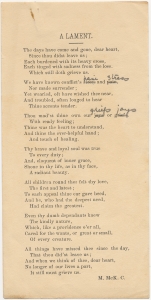 A LAMENT.
The days have come and gone, dear heart,
Since thou didst leave us;
Each burdened with its heavy cross,
Each tinged with sadness from the loss
Which still doth grieve us.
We have known conflict's
Nor made surrender;
Yet wearied, oft have wished thee near,
And troubled, often longed to hear
Thine accents tender.
griefs joys
Thou wouldst share our
With ready feeling;
Thine was the heart to understand,
And thine the ever-helpful hand;
And touch of healing.
Thy brave and loyal soul was true
To every duty;
And, eloquent of inner grace,
Shone in thy life, as in thy face,
A radiant beauty.
All children round thee felt thy love,
The five and latest;
To each appeal thine ear gave heed,
And he, who had the deepest need,
Had claims the greatest.
Even thy dumb dependents knew
The kindly nature,
Which, like a providence o'er all,
Cared for the wants, or great or small,
Of every creature.
All things have missed thee since the day,
That thou didst leave us;
And when we think of thee, dear heart,
No longer of our lives a part,
It still must grieve us.
M. McK. C.